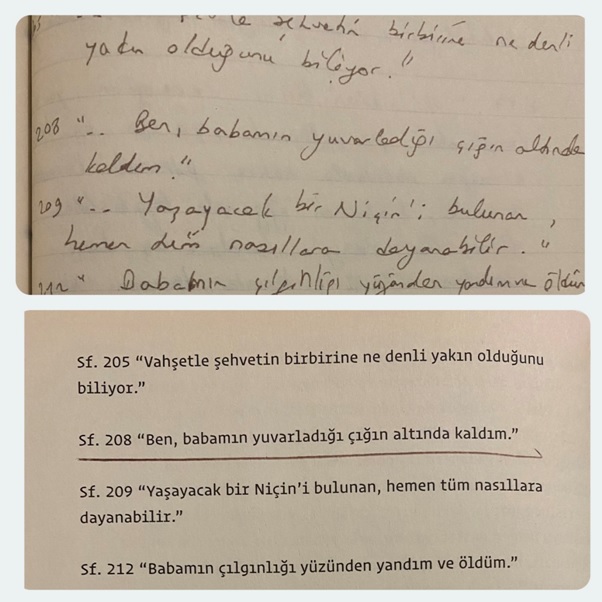 şehvetin birbirine ne denli
yakın olduğunu biliyor."
208 ".. Ben, babamın yuvarladığı çığın altında
kaldım."
209 ".. Yaşayacak bir Niçin'i bulunan,
hemen tüm nasıllara dayanabilir."
212 " Babamın çılgınlığı yüzünden yandım ve öldüm
Sf. 205 “Vahşetle şehvetin birbirine ne denli yakın olduğunu
biliyor.”
Sf. 208 “Ben, babamın yuvarladığı çığın altında kaldım.”
Sf. 209 “Yaşayacak bir Niçin’i bulunan, hemen tüm nasıllara
dayanabilir.”
Sf. 212 “Babamın çılgınlığı yüzünden yandım ve öldüm.”